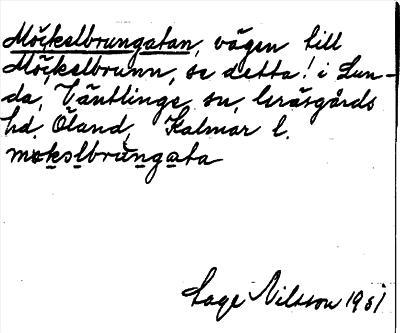 Möckelbrungatan, vägen till
Möckelbrunn, se detta! i Lun-
da, Ventlinge sn, Gräsgårds
hd. Öland, Kalmar l.
møkslbrungata
Lage Nilsson 1951